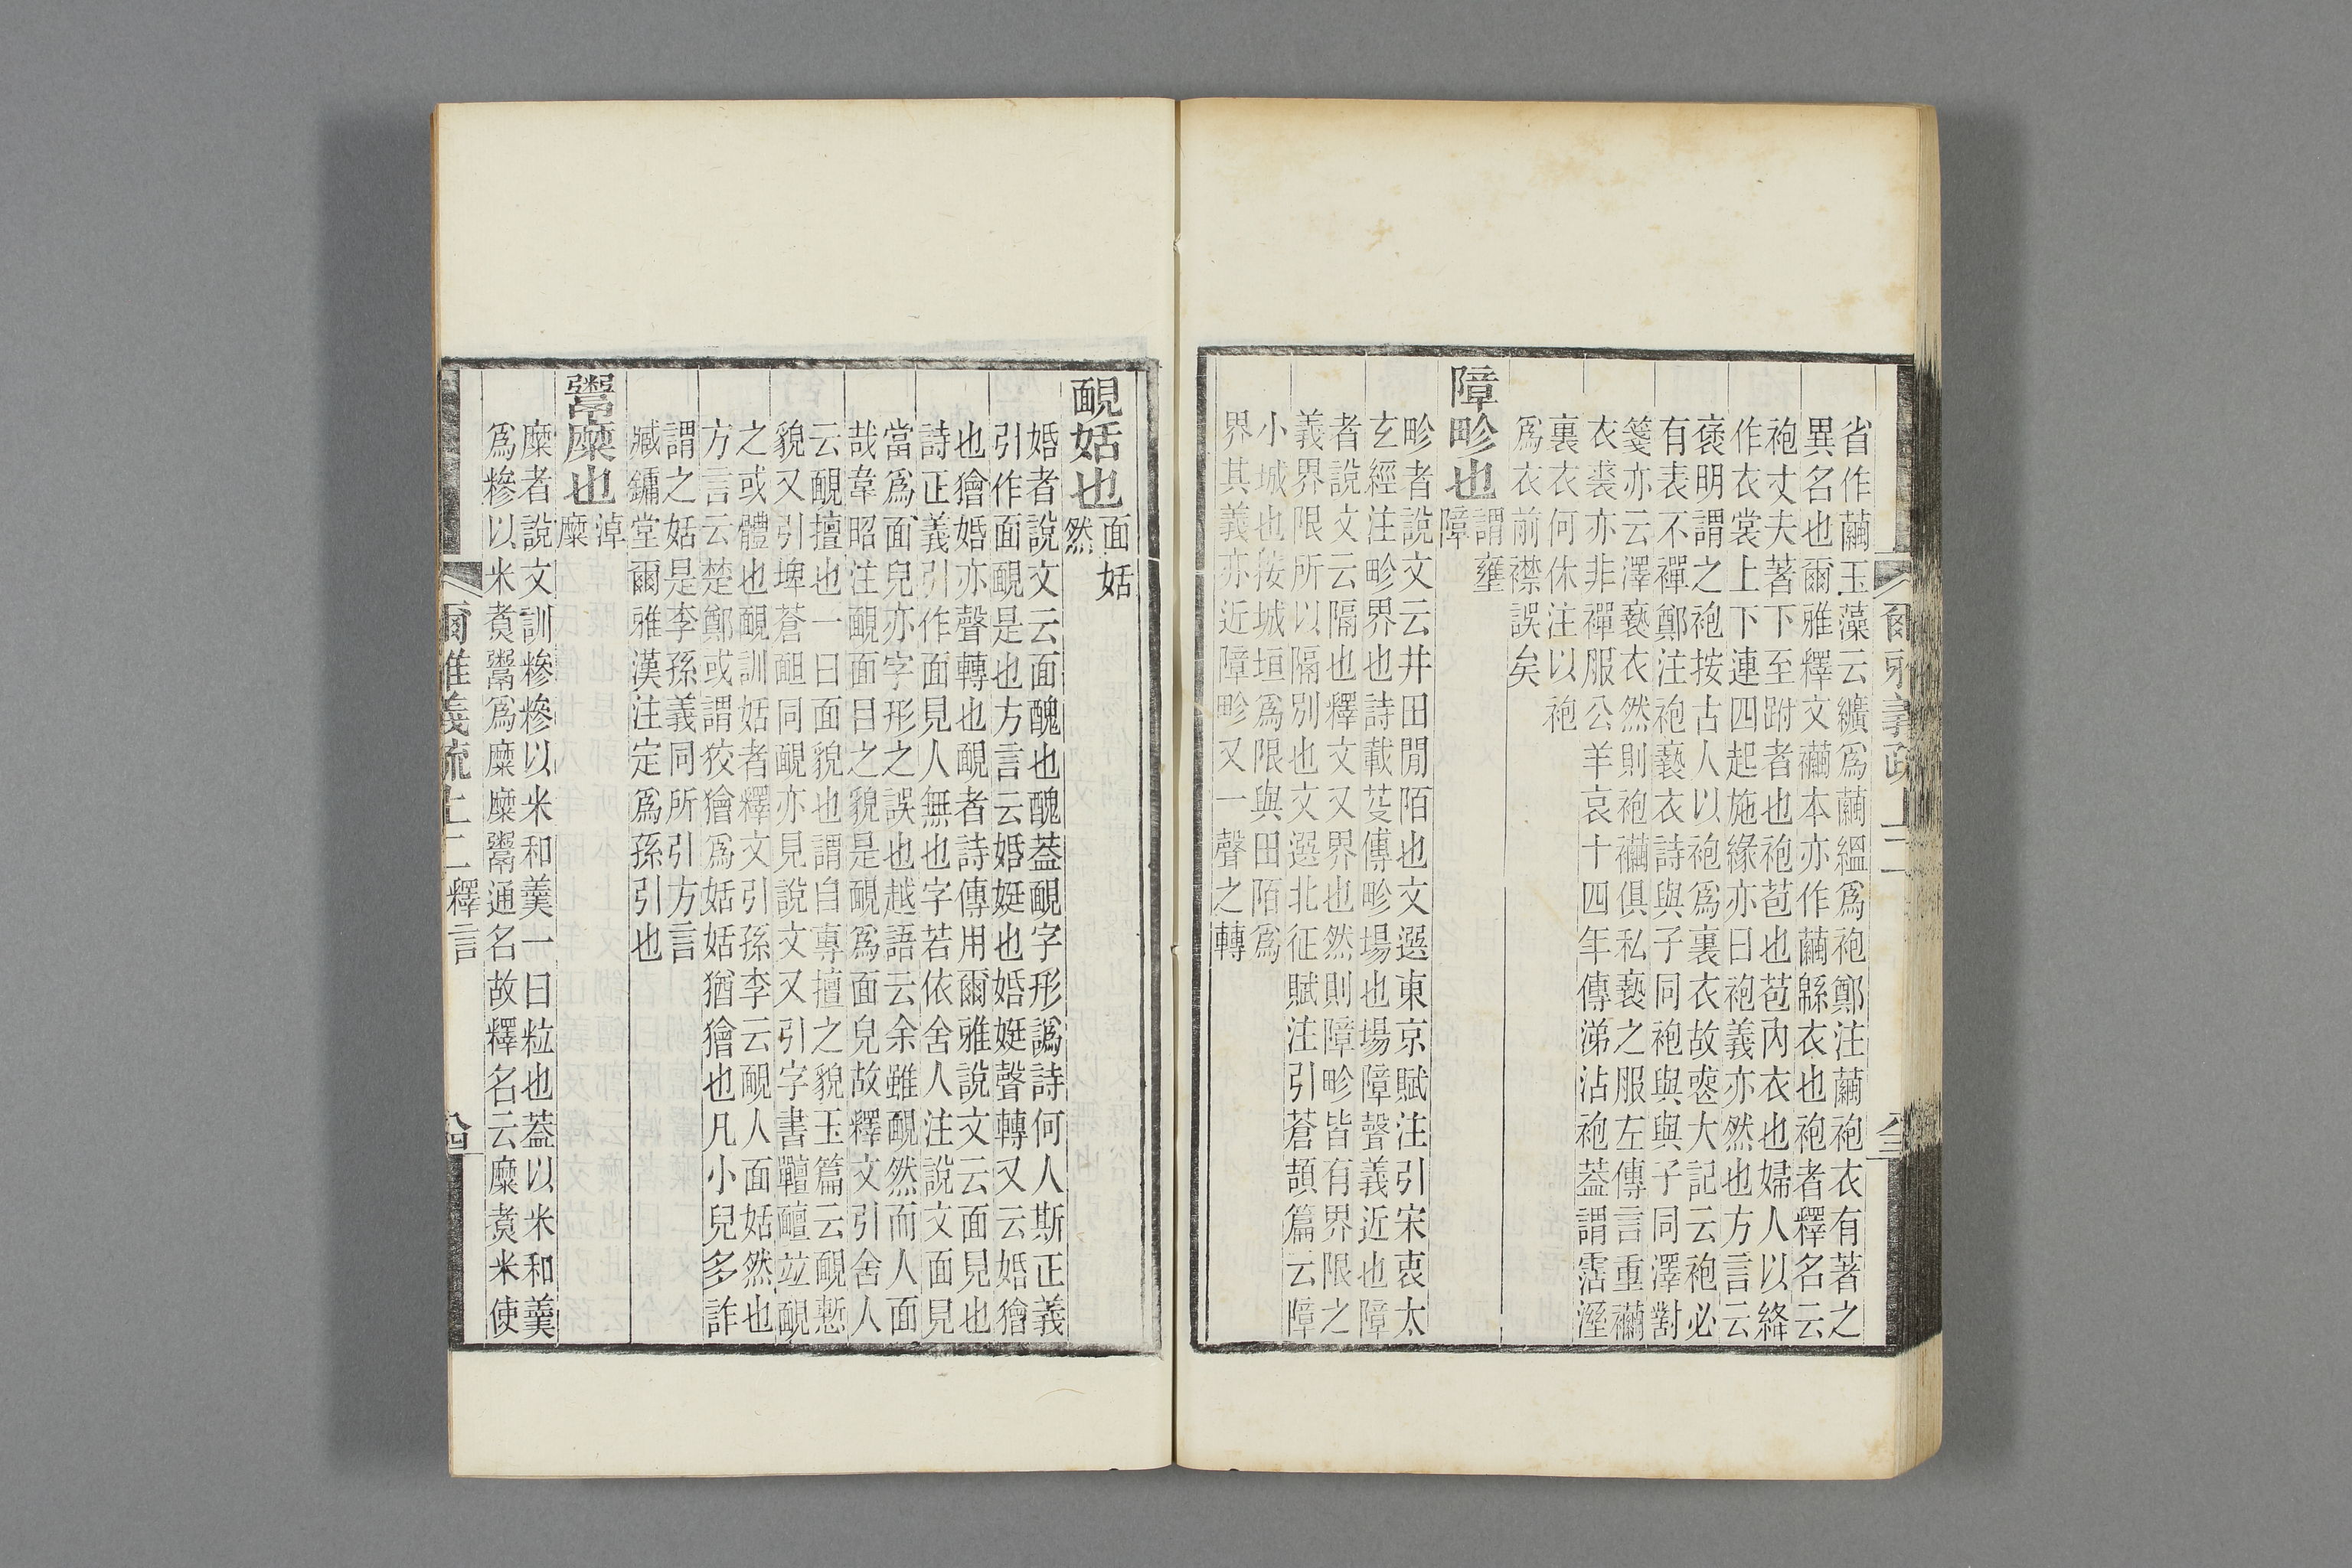 省作繭玉藻云纊爲繭縕爲袍鄭注繭袍衣有著之
異名也爾雅釋文襺本亦作繭緜衣也袍者釋名云
袍丈夫著下至跗者也袍苞也苞內衣也婦人以絳
作衣裳上下連四起施緣亦曰袍義亦然也方言云
褒明謂之袍按古人以袍爲裏衣故喪大記云袍必
有表不襌鄭注袍褻衣詩與子同袍與與子同澤對
箋亦云澤褻衣然則袍襺俱私褻之服左傳言重襺
衣裘亦非襌服公羊哀十四年傳涕沾袍葢謂霑溼
裏衣何休注以袍
爲衣前襟誤矣
障畛也
謂壅
障
畛者說文云井田閒陌也文選東京賦注引宋衷太
玄經注畛界也詩載芟傳畛場也場障聲義近也障
者說文云隔也釋文又界也然則障畛皆有界限之
義界限所以隔別也文選北征賦注引蒼頡篇云障
小城也按城垣爲限與田陌爲
界其義亦近障畛又一聲之轉
爾雅義疏 上二
靦姡也
面姡
然
婚者說文云面醜也醜葢靦字形譌詩何人斯正義
引作面靦是也方言云婚娗也婚娗聲轉又云婚獪
也獪婚亦聲轉也靦者詩傳用爾雅說文云面見也
詩正義引作面見人無也字若依舍人注說文面見
當爲面皃亦字形之誤也越語云余雖靦然而人面
哉韋昭注靦面目之貌是靦爲面皃故釋文引舍人
云靦擅也一曰面貌也謂自專擅之貌玉篇云靦慙
貌又引埤蒼䩄同靦亦見說文又引字書䩤𩉊竝靦
之或體也靦訓姡者釋文引孫李云靦人面姡然也
方言云楚鄭或謂狡獪爲姡姡猶獪也凡小兒多詐
謂之姡是李孫義同所引方言
臧鏞堂爾雅漢注定爲孫引也
鬻糜也
淖
糜
糜者說文訓糝糝以米和羹一曰粒也葢以米和羹
爲糝以米煑鬻爲糜糜鬻通名故釋名云糜煑米使
爾雅義疏 上二 釋言